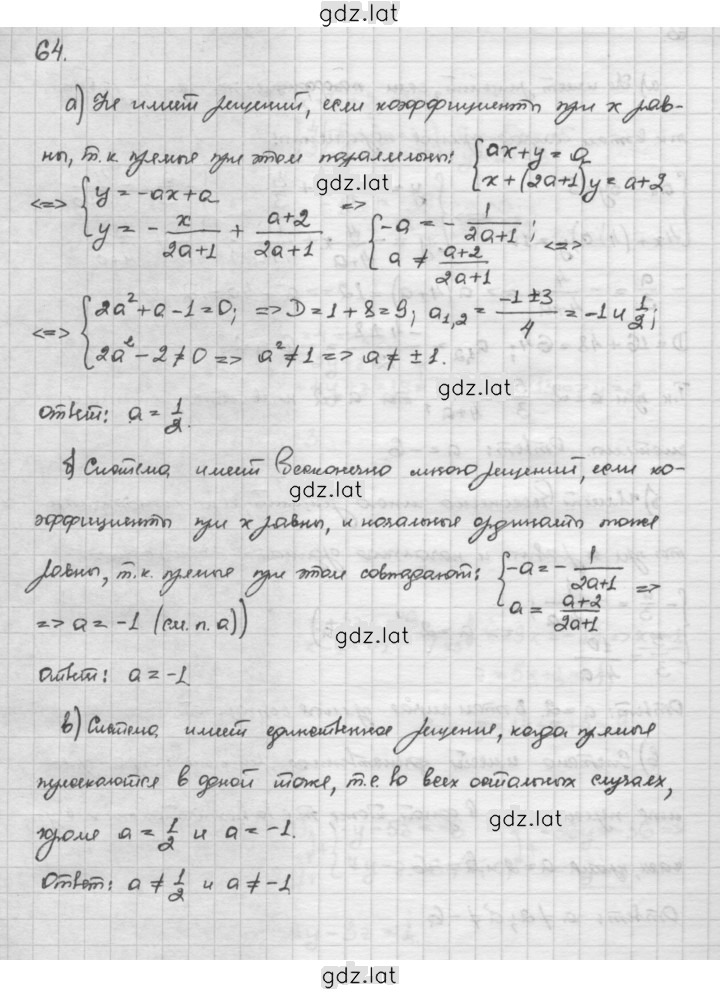 gdz.lat
64.
а) Не имеет решений, если коэффициенты при x рав-
ны, т.к. прямые при этом параллельны: { ax+y=a
x+(2a+1)y=a+2
gdz.lat
<=> { y=-ax+a
y = - x/(2a+1) + (a+2)/(2a+1) => { -a = - 1/(2a+1);
a ≠ (a+2)/(2a+1) <=>
gdz.lat
<=> { 2a²+a-1=0; => D=1+8=9; a₁,₂ = (-1±3)/4 = -1 и 1/2;
2a²-2≠0 => a²≠1 => a≠±1.
gdz.lat
Ответ: a = 1/2.
б) Система имеет бесконечно много решений, если ко-
gdz.lat
эффициенты при x равны, и начальные ординаты тоже
равны, т.к. прямые при этом совпадают: { -a = - 1/(2a+1)
a = (a+2)/(2a+1) =>
=> a = -1 (см. п. а))
gdz.lat
Ответ: a = -1
в) Система имеет единственное решение, когда прямые
пересекаются в одной точке, т.е. во всех остальных случаях,
gdz.lat
кроме a = 1/2 и a = -1.
Ответ: a ≠ 1/2 и a ≠ -1
gdz.lat